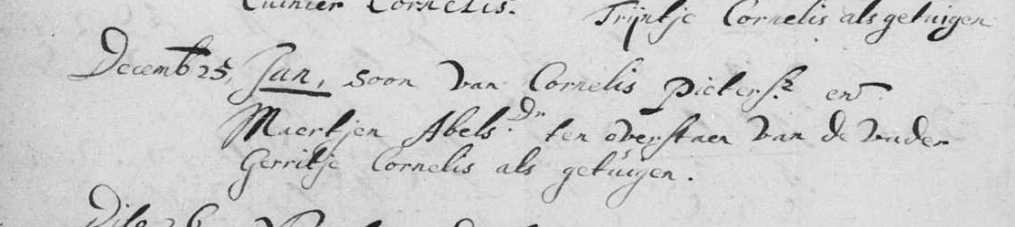 Cornelis. Trijntje Cornelis als getuigen
Decemb 25, Jan, soon van Cornelis Pietersz en
Maertjen Abels Dr ten overstaen van de vader
Gerritje Cornelis als getuigen.